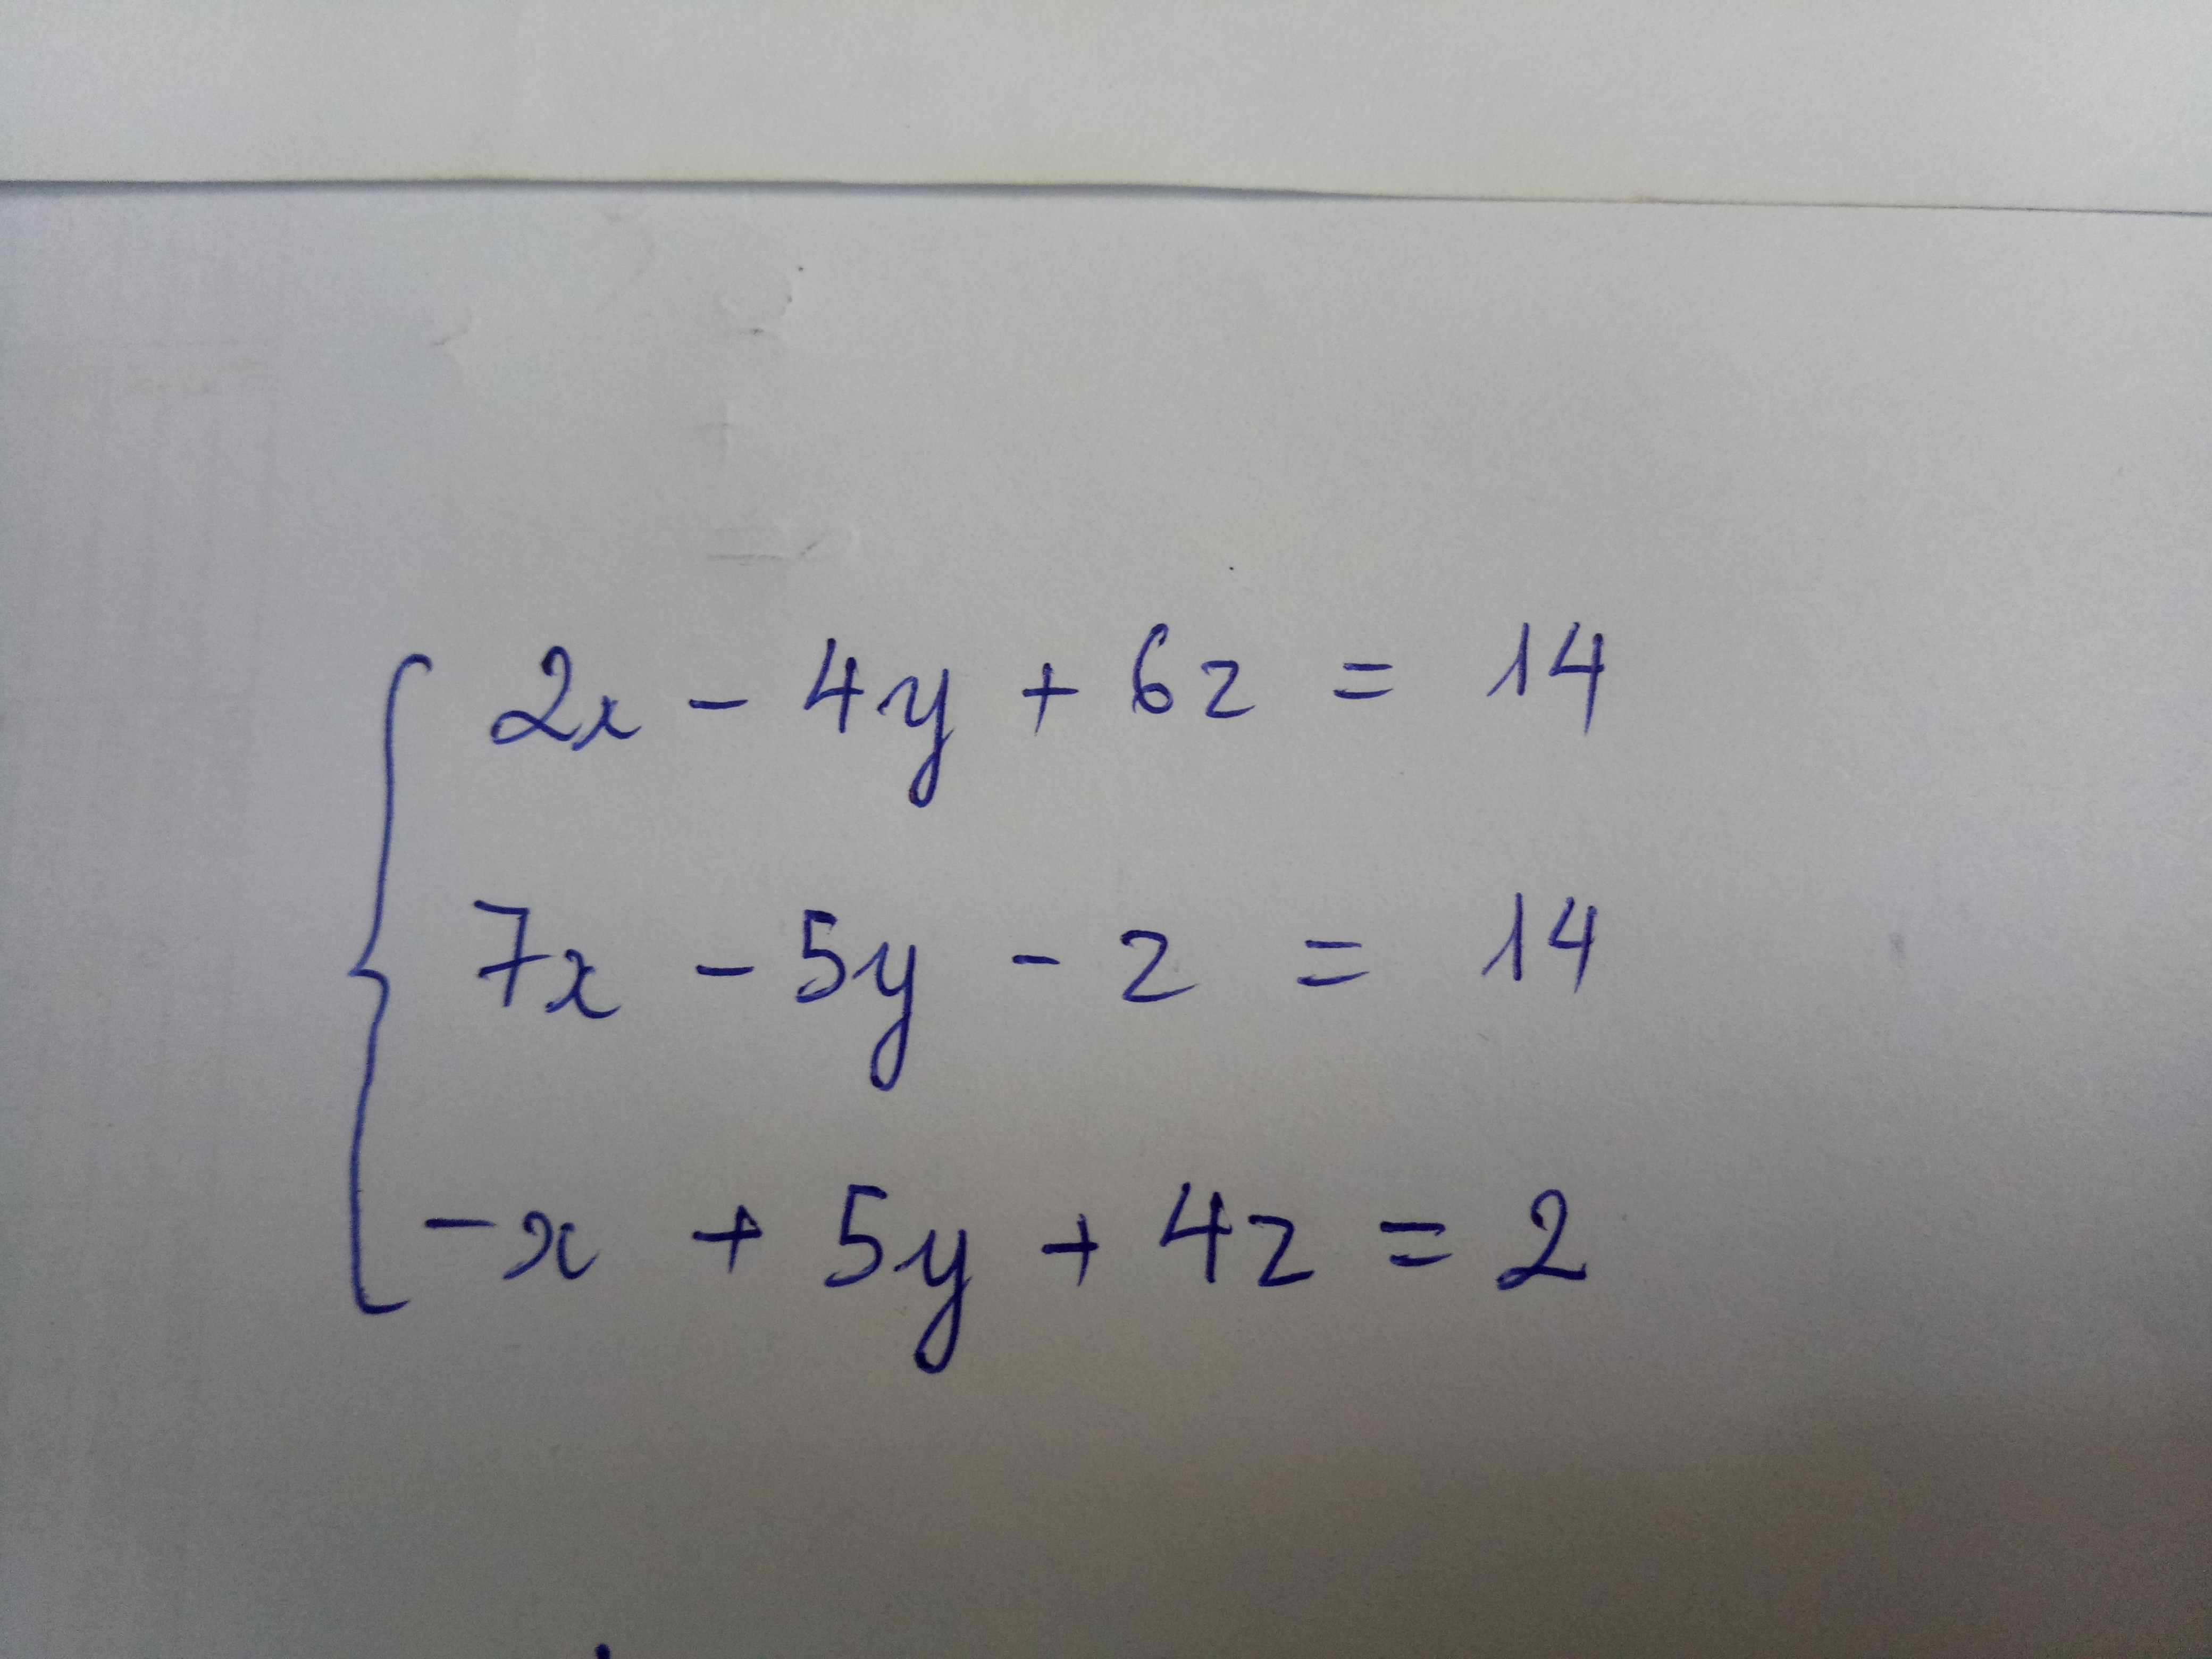 2x - 4y + 6z = 14
7x - 5y - z = 14
-x + 5y + 4z = 2